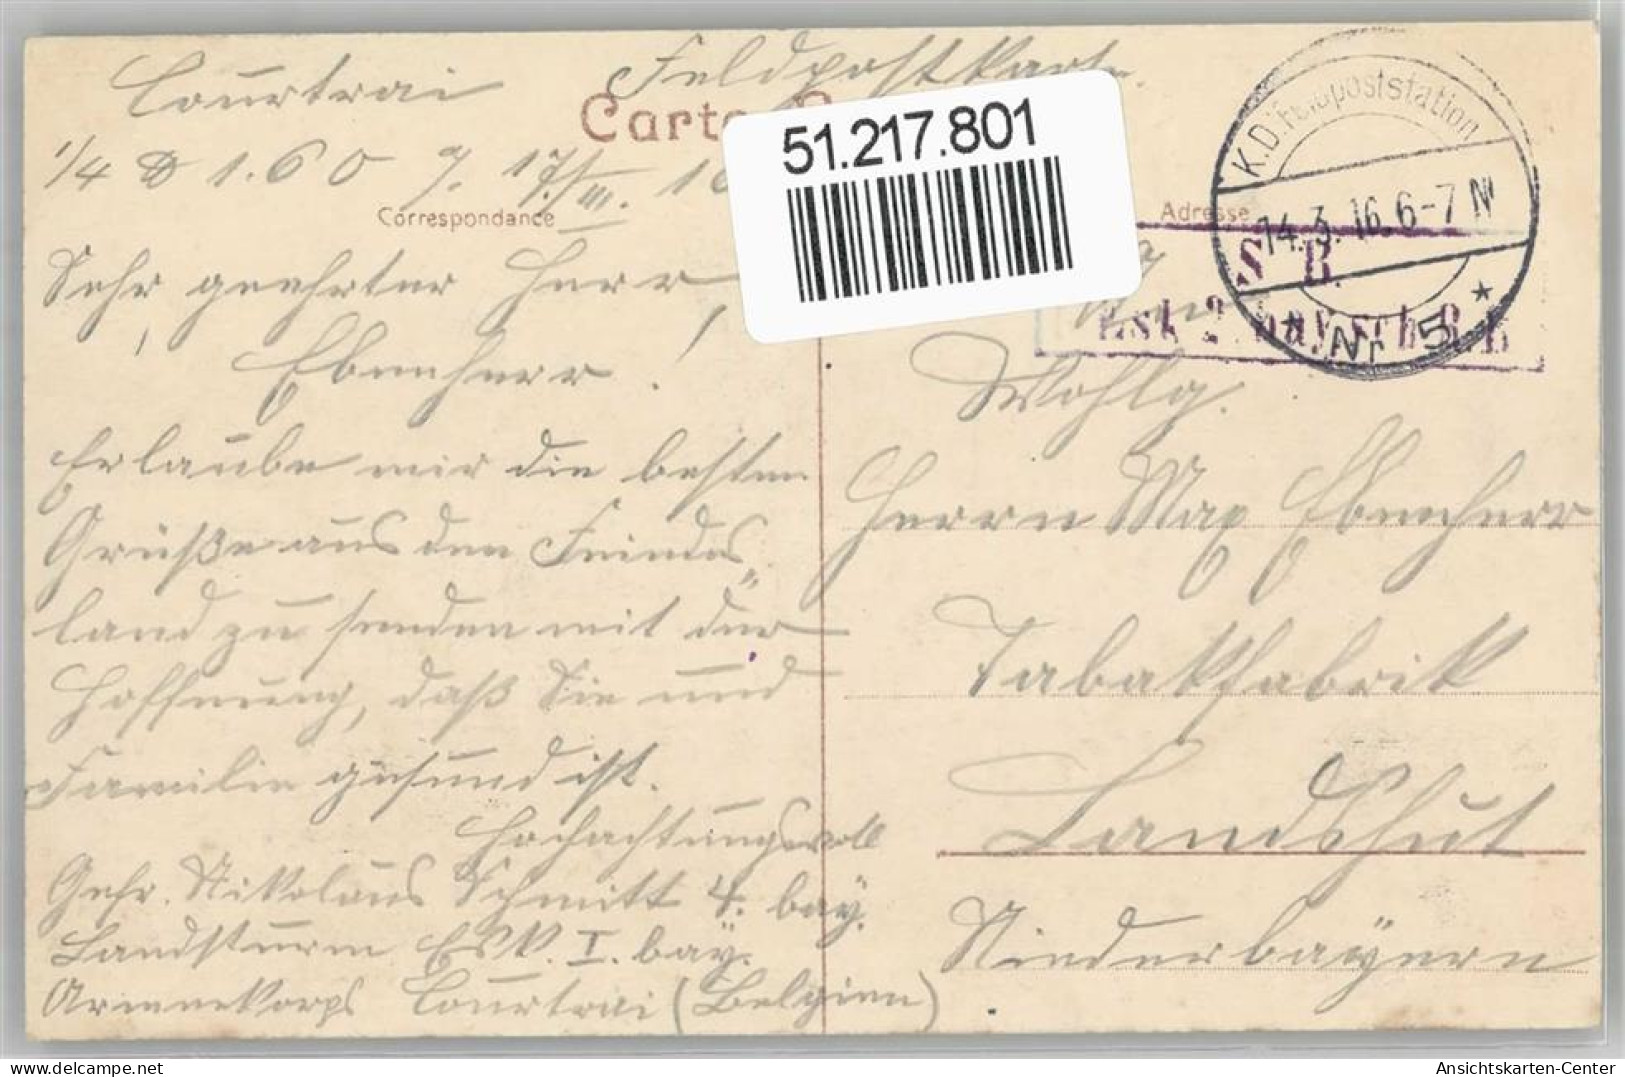 Feldpostkarte.
Courtrai
Carte
51.217.801
1/4 1.60 17./III. 16
Correspondance
Adresse
K.D. Feldpoststation
14.3.16. 6-7 N
Nr. 5
S. B.
Sehr geehrter Herr
Ebenherr!
Erlaube mir die besten
Grüße aus dem Feindes
land zu senden mit der
Hoffnung, daß Sie und
Familie gesund ist.
Hochachtungsvoll
Gefr. Nikolaus Schmitt 4. bay.
Landsturm Esk. I. bay.
Armeekorps Courtrai (Belgien)
An
Wohlg.
Herrn Max Ebenherr
Tabakfabrik
Landshut
Niederbayern
Ansichtskarten-Center